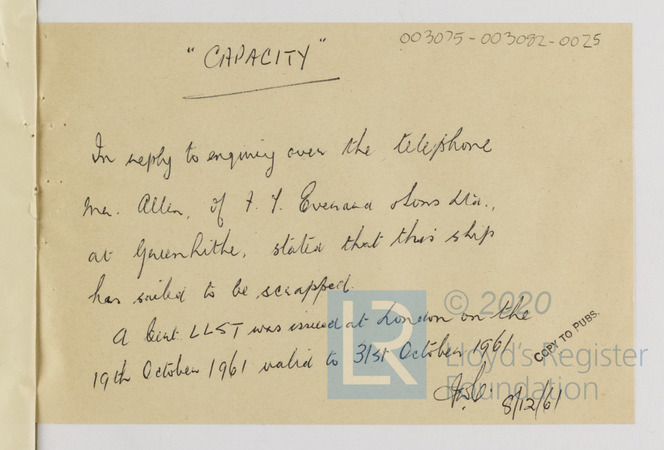 003075-003082-0025
"CAPACITY"
In reply to enquiry over the telephone
Mr. Allen, of F. T. Everard & Sons Ltd.,
at Greenhithe, stated that this ship
has sailed to be scrapped.
A Cert. LLST was issued at London on the
19th October 1961 valid to 31st October 1961
COPY TO PUBS.
8/12/61
LR
© 2020
Lloyd's Register
Foundation